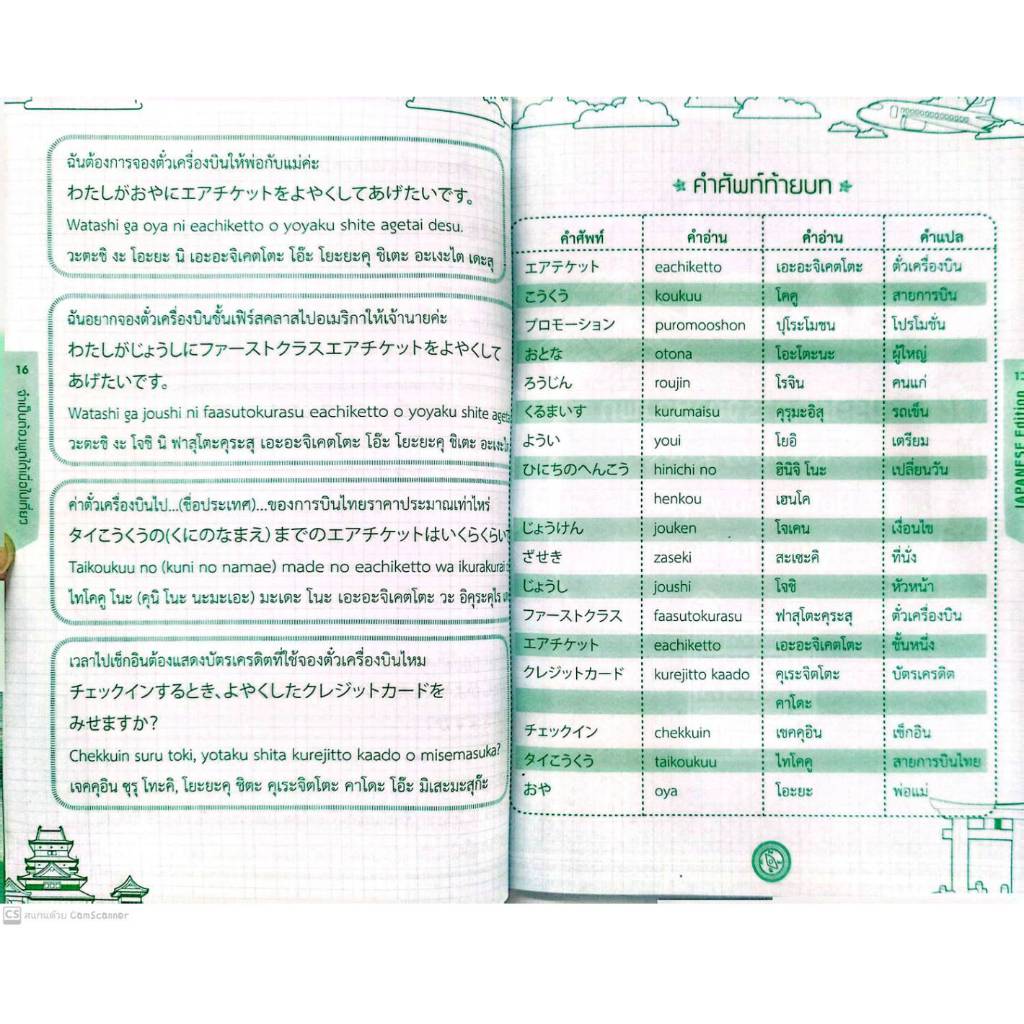 ฉันต้องการจองตั๋วเครื่องบินให้พ่อกับแม่ค่ะ
わたしがおやにエアチケットをよやくしてあげたいです。
Watashi ga oya ni eachiketto o yoyaku shite agetai desu.
วะตะชิ งะ โอะยะ นิ เอะอะจิเคตโตะ โอ๊ะ โยะยะคุ ชิเตะ อะเงะไต เดะสุ
ฉันอยากจองตั๋วเครื่องบินชั้นเฟิร์สคลาสไปอเมริกาให้เจ้านายค่ะ
わたしがじょうしにファーストクラスエアチケットをよやくして
あげたいです。
Watashi ga joushi ni faasutokurasu eachiketto o yoyaku shite
วะตะชิ งะ โจชิ นิ ฟาสุโตะคุระสุ เอะอะจิเคตโตะ โอ๊ะ โยะยะคุ ชิเตะ
ค่าตั๋วเครื่องบินไป...(ชื่อประเทศ)...ของการบินไทยราคาประมาณเท่าไหร่
タイこうくうの(くにのなまえ)までのエアチケットはいくらくらい
Taikoukuu no (kuni no namae) made no eachiketto wa ikurakurai
ไทโคคู โนะ (คุนิ โนะ นะมะเอะ) มะเดะ โนะ เอะอะจิเคตโตะ วะ อิคุระคุไร
เวลาไปเช็กอินต้องแสดงบัตรเครดิตที่ใช้จองตั๋วเครื่องบินไหม
チェックインするとき、よやくしたクレジットカードを
みせますか?
Chekkuin suru toki, yotaku shita kurejitto kaado o misemasuka?
เจคคุอิน ซุรุ โทะคิ, โยะยะคุ ชิตะ คุเระจิตโตะ คาโดะ โอ๊ะ มิเสะมะสุก๊ะ
16
คำศัพท์ท้ายบท
คำศัพท์ คำอ่าน คำอ่าน คำแปล
エアテケット eachiketto เอะอะจิเคตโตะ ตั๋วเครื่องบิน
こうくう koukuu โคคู สายการบิน
プロモーション puromooshon ปุโระโมชน โปรโมชั่น
おとな otona โอะโตะนะ ผู้ใหญ่
ろうじん roujin โรจิน คนแก่
くるまいす kurumaisu คุรุมะอิสุ รถเข็น
ようい youi โยอิ เตรียม
ひにちのへんこう hinichi no ฮินิจิ โนะ เปลี่ยนวัน
henkou เฮนโค
じょうけん jouken โจเคน เงื่อนไข
ざせき zaseki สะเซะคิ ที่นั่ง
じょうし joushi โจชิ หัวหน้า
ファーストクラス faasutokurasu ฟาสุโตะคุระสุ ตั๋วเครื่องบิน
エアチケット eachiketto เอะอะจิเคตโตะ ชั้นหนึ่ง
クレジットカード kurejitto kaado คุเระจิตโตะ บัตรเครดิต
คาโดะ
チェックイン chekkuin เชคคุอิน เช็กอิน
タイこうくう taikoukuu ไทโคคู สายการบินไทย
おや oya โอะยะ พ่อแม่
JAPANESE Edition
CS สแกนด้วย CamScanner